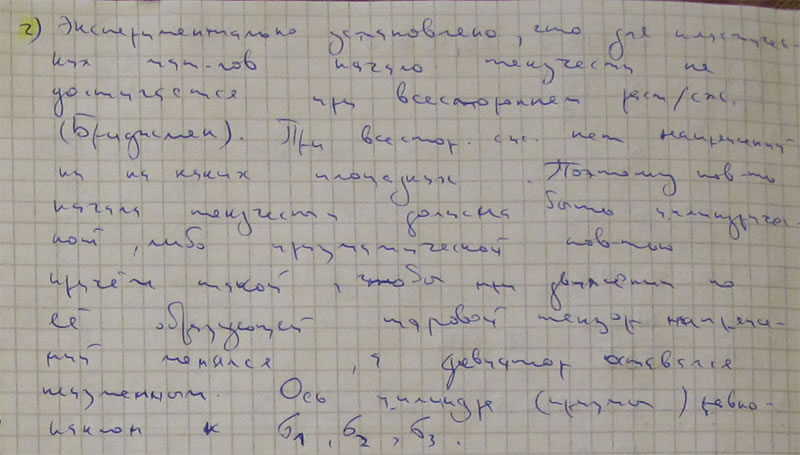 2) Экспериментально установлено, что для пластичес-
ких мат-лов начало текучести не
достигается при всестороннем раст/сж.
(Бриджмен). При всестор. сж. нет напряжений
ни на каких площадках. Поэтому пов-ть
начала текучести должна быть цилиндричес-
кой, либо призматической пов-тью
причём такой, чтобы при движении по
её образующей шаровой тензор напряже-
ний менялся, а девиатор оставался
неизменным. Ось цилиндра (призмы) равно-
наклон к σ1, σ2, σ3.